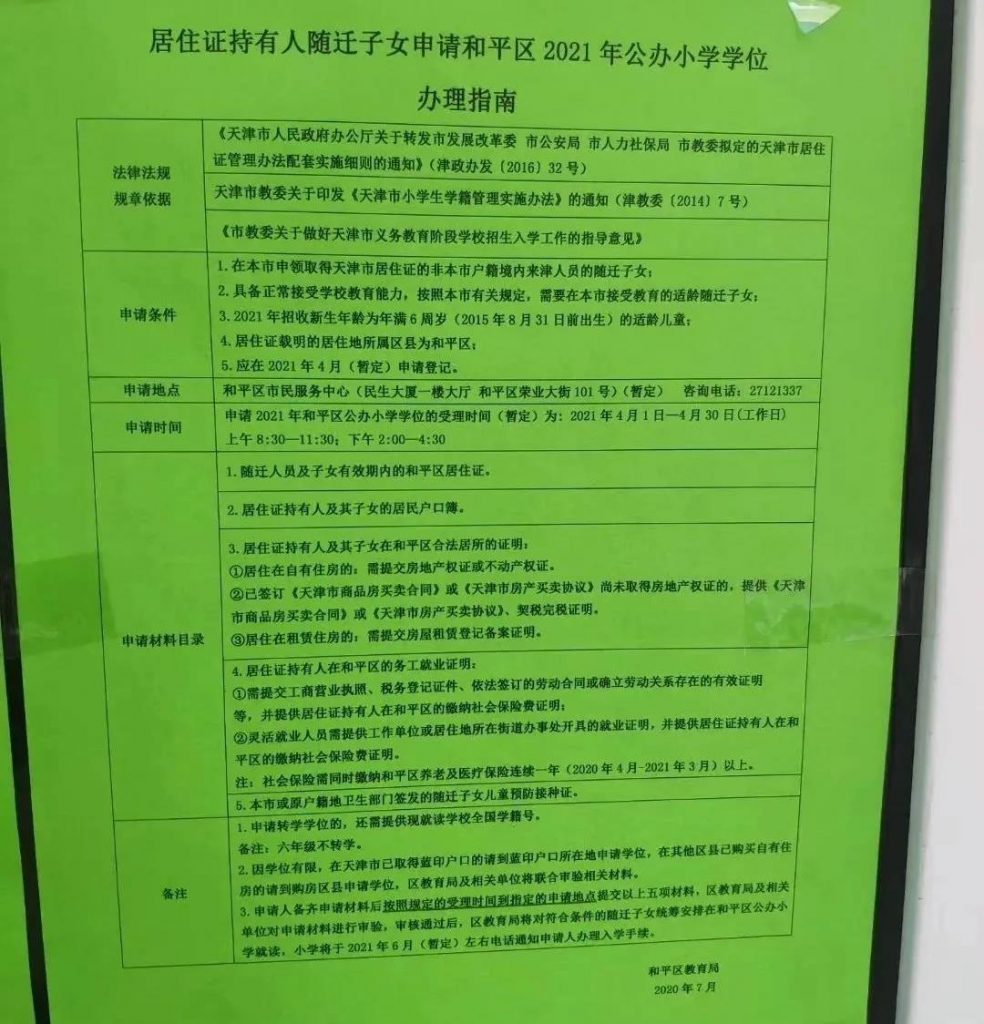 居住证持有人随迁子女申请和平区 2021 年公办小学学位
办理指南
法律法规
规章依据
《天津市人民政府办公厅关于转发市发展改革委 市公安局 市人力社保局 市教委拟定的天津市居住
证管理办法配套实施细则的通知》（津政办发〔2016〕32 号）
天津市教委关于印发《天津市小学生学籍管理实施办法》的通知（津教委〔2014〕7 号）
《市教委关于做好天津市义务教育阶段学校招生入学工作的指导意见》
申请条件
1. 在本市申领取得天津市居住证的非本市户籍境内来津人员的随迁子女；
2. 具备正常接受学校教育能力，按照本市有关规定，需要在本市接受教育的适龄随迁子女；
3. 2021 年招收新生年龄为年满 6 周岁（2015 年 8 月 31 日前出生）的适龄儿童；
4. 居住证载明的居住地所属区县为和平区；
5. 应在 2021 年 4 月（暂定）申请登记。
申请地点
和平区市民服务中心（民生大厦一楼大厅 和平区荣业大街 101 号）（暂定） 咨询电话：27121337
申请时间
申请 2021 年和平区公办小学学位的受理时间（暂定）为：2021 年 4 月 1 日—4 月 30 日（工作日）
上午 8:30—11:30；下午 2:00—4:30
申请材料目录
1. 随迁人员及子女有效期内的和平区居住证。
2. 居住证持有人及其子女的居民户口簿。
3. 居住证持有人及其子女在和平区合法居所的证明：
①居住在自有住房的：需提交房地产权证或不动产权证。
②已签订《天津市商品房买卖合同》或《天津市房产买卖协议》尚未取得房地产权证的，提供《天津
市商品房买卖合同》或《天津市房产买卖协议》、契税完税证明。
③居住在租赁住房的：需提交房屋租赁登记备案证明。
4. 居住证持有人在和平区的务工就业证明：
①需提交工商营业执照、税务登记证件、依法签订的劳动合同或确立劳动关系存在的有效证明
等，并提供居住证持有人在和平区的缴纳社会保险费证明；
②灵活就业人员需提供工作单位或居住地所在街道办事处开具的就业证明，并提供居住证持有人在和
平区的缴纳社会保险费证明。
注：社会保险需同时缴纳和平区养老及医疗保险连续一年（2020 年 4 月-2021 年 3 月）以上。
5. 本市或原户籍地卫生部门签发的随迁子女儿童预防接种证。
备注
1. 申请转学学位的，还需提供现就读学校全国学籍号。
备注：六年级不转学。
2. 因学位有限，在天津市已取得蓝印户口的请到蓝印户口所在地申请学位，在其他区县已购买自有住
房的请到购房区县申请学位，区教育局及相关单位将联合审验相关材料。
3. 申请人备齐申请材料后按照规定的受理时间到指定的申请地点提交以上五项材料，区教育局及相关
单位对申请材料进行审验，审核通过后，区教育局将对符合条件的随迁子女统筹安排在和平区公办小
学就读，小学将于 2021 年 6 月（暂定）左右电话通知申请人办理入学手续。
和平区教育局
2020 年 7 月